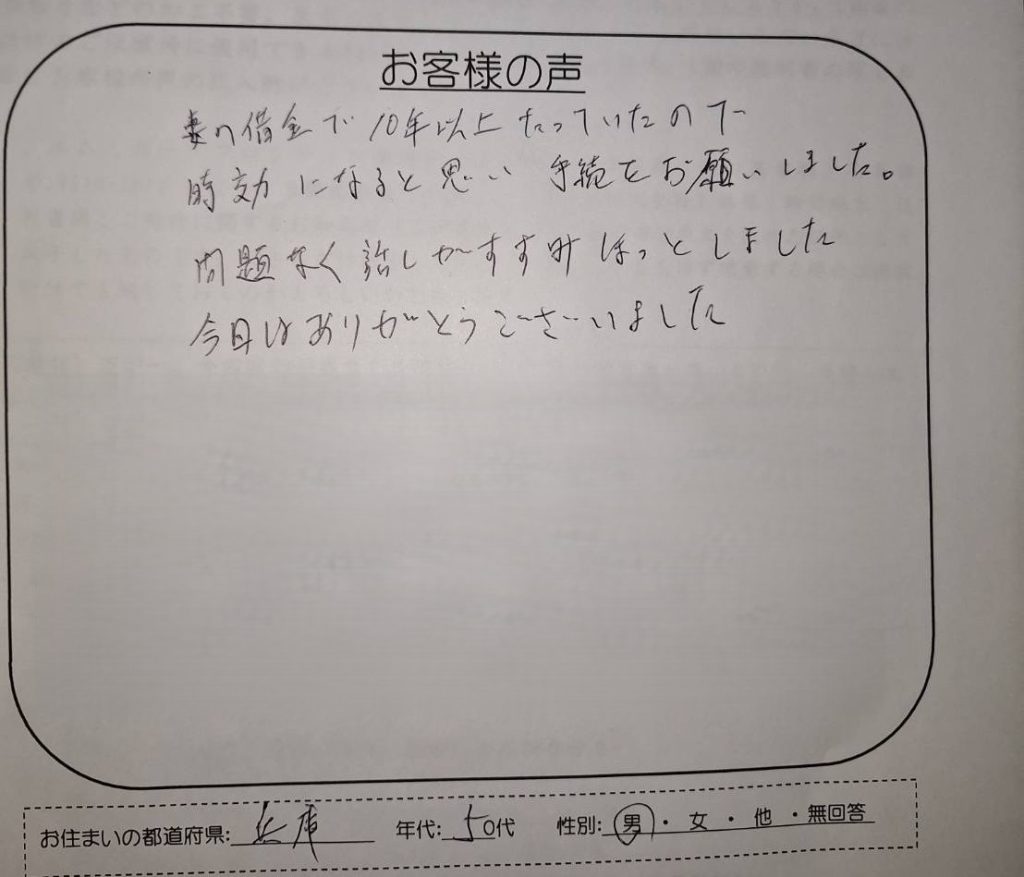 お客様の声
妻の借金で10年以上たっていたので
時効になると思い 手続をお願いしました。
問題なく話しがすすみほっとしました
今日はありがとうございました
お住まいの都道府県:兵庫 年代:50代 性別:男・女・他・無回答